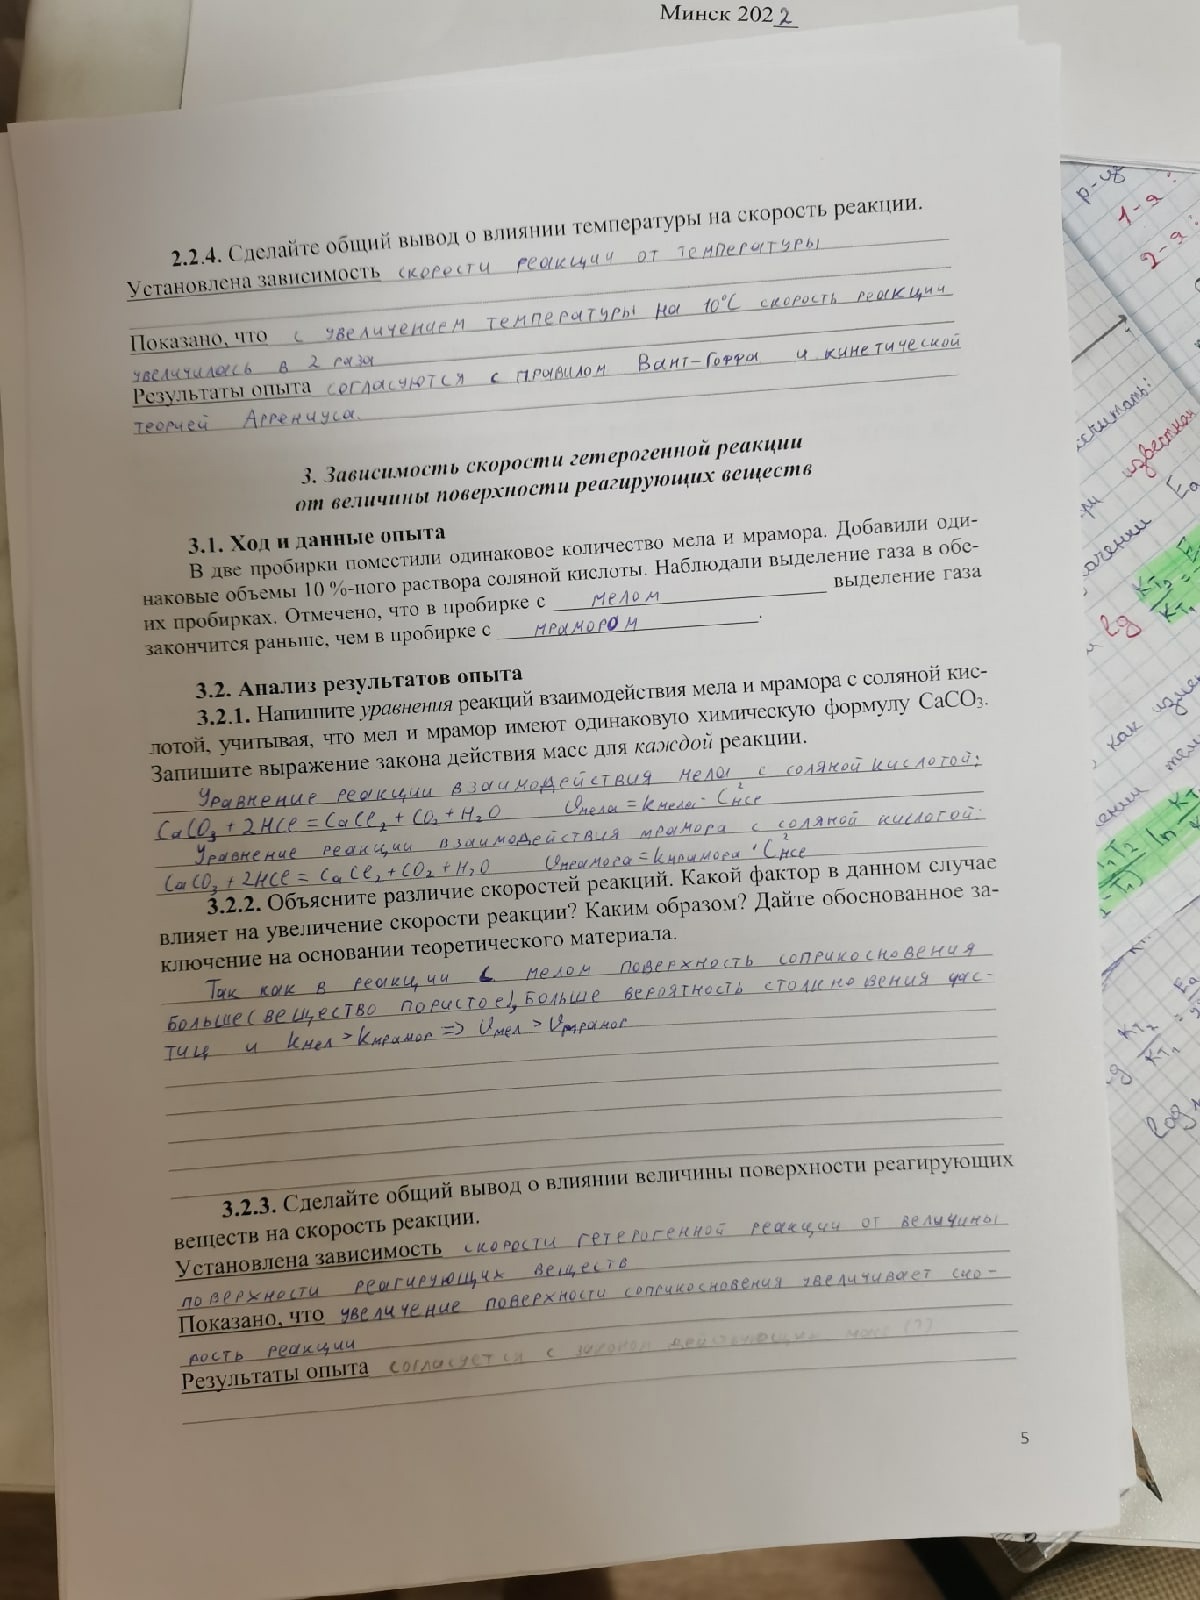 Минск 2022
2.2.4. Сделайте общий вывод о влиянии температуры на скорость реакции.
Установлена зависимость скорости реакции от температуры
Показано, что с увеличением температуры на 10°С скорость реакции
увеличилась в 2 раза
Результаты опыта согласуются с правилом Вант-Гоффа и кинетической
теорией Аррениуса.
3. Зависимость скорости гетерогенной реакции
от величины поверхности реагирующих веществ
3.1. Ход и данные опыта
В две пробирки поместили одинаковое количество мела и мрамора. Добавили оди-
наковые объемы 10 %-ного раствора соляной кислоты. Наблюдали выделение газа в обе-
их пробирках. Отмечено, что в пробирке с мелом выделение газа
закончится раньше, чем в пробирке с мрамором.
3.2. Анализ результатов опыта
3.2.1. Напишите уравнения реакций взаимодействия мела и мрамора с соляной кис-
лотой, учитывая, что мел и мрамор имеют одинаковую химическую формулу CaCO₃.
Запишите выражение закона действия масс для каждой реакции.
Уравнение реакции взаимодействия мела с соляной кислотой:
CaCO₃ + 2HCl = CaCl₂ + CO₂ + H₂O υмела = kмела · C²HCl
Уравнение реакции взаимодействия мрамора с соляной кислотой:
CaCO₃ + 2HCl = CaCl₂ + CO₂ + H₂O υмрамора = kмрамора · C²HCl
3.2.2. Объясните различие скоростей реакций. Какой фактор в данном случае
влияет на увеличение скорости реакции? Каким образом? Дайте обоснованное за-
ключение на основании теоретического материала.
Так как в реакции с мелом поверхность соприкосновения
больше (вещество пористое), больше вероятность столкновения час-
тиц и kмел > kмрамор => υмел > υмрамор
3.2.3. Сделайте общий вывод о влиянии величины поверхности реагирующих
веществ на скорость реакции.
Установлена зависимость скорости гетерогенной реакции от величины
поверхности реагирующих веществ
Показано, что увеличение поверхности соприкосновения увеличивает ско-
рость реакции
Результаты опыта согласуется с законом действующих масс (?)
5
р-из
1-я :
2-я :
известная
Ea
lg
как
log